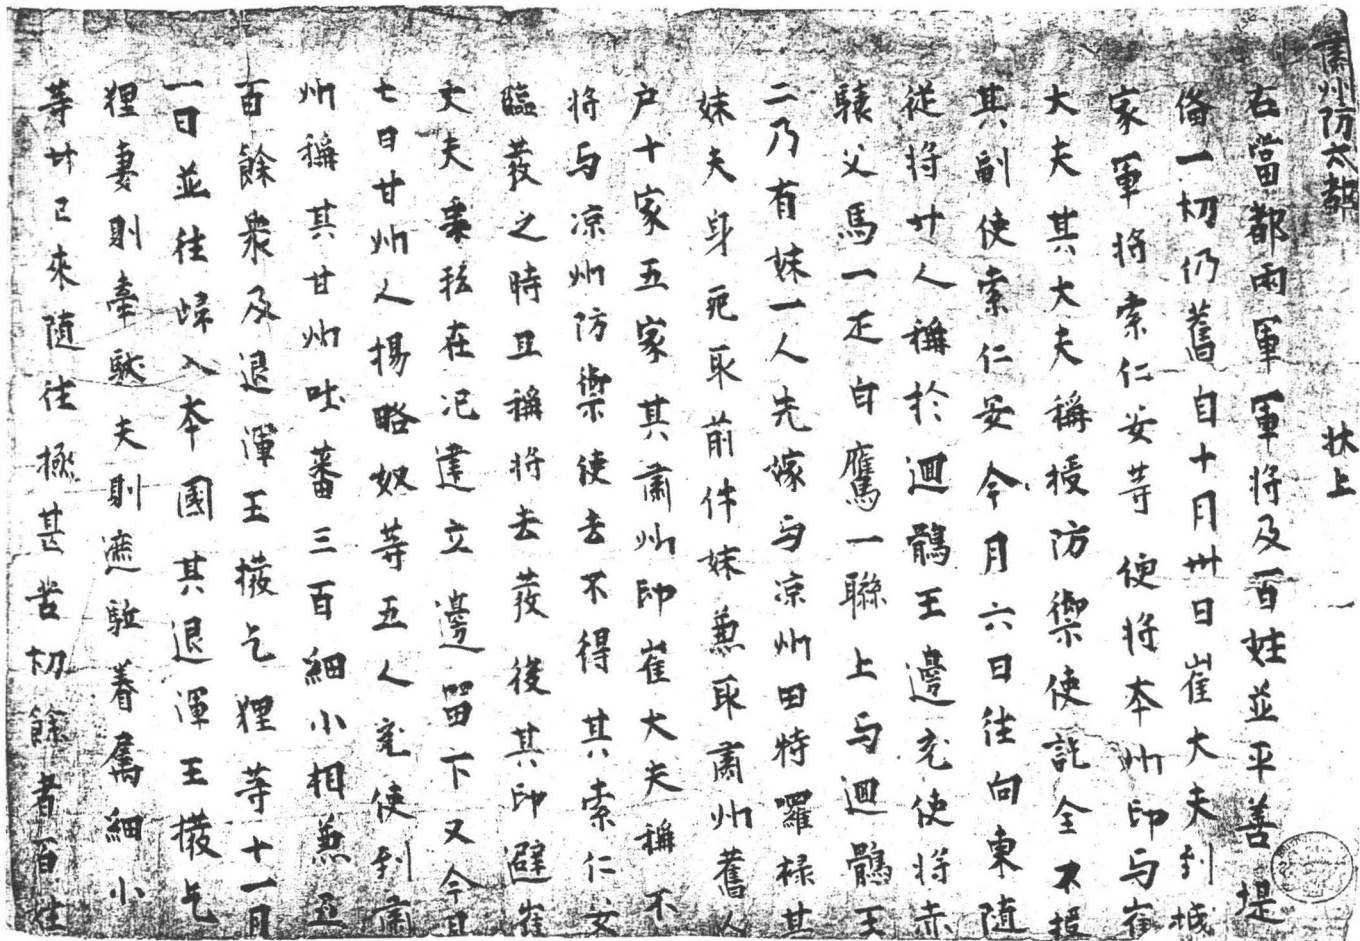 肅州防戍都　狀上
右當都兩軍軍將及百姓並平善堤
俻一切仍舊自十月卅日崔大夫到城
家軍將索仁安等　便將本州印与崔
大夫其大夫稱授防禦使訖全不授
其副使索仁安今月六日往向東隨
從將廿人稱於迴鶻王邊充使將赤
驃父馬一疋白鷹一聯上与迴鶻王
二乃有妹一人先嫁与凉州田特囉祿其
妹夫身死取前件妹兼取肅州舊人
户十家五家其肅州印崔大夫稱不
將与凉州防禦使去不得其索仁安
臨發之時且稱將去發後其印避崔
大夫衷私在氾建立邊留下又今月
七日甘州人楊略奴等五人充使到肅
州稱其甘州吐蕃三百細小相兼五
百餘衆及退渾王撥乞狸等十一月
一日並往歸入本國其退渾王撥乞
狸妻則牽馱夫則遮駈眷屬細小
等廿已來隨往極甚苦切餘者百姓